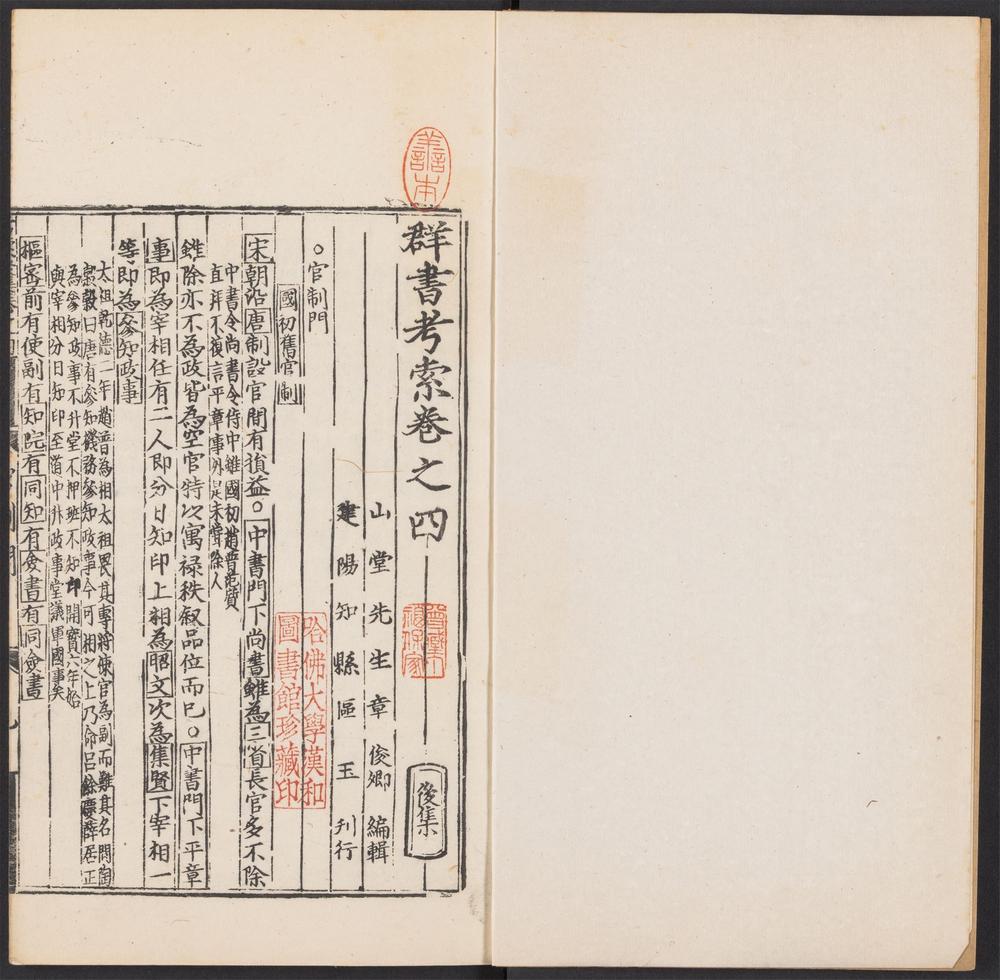 群書考索卷之四
後集
山堂先生章俊卿編輯
建陽知縣區玉刊行
○官制門
國初舊官制
宋朝沿唐制設官間有損益○中書門下尚書雖為三省長官多不除
中書令尚書令侍中雖國初趙普范質
直拜不復言平章事外是未嘗除人
雖除亦不為政皆為空官特以寓祿秩叙品位而已○中書門下平章
事即為宰相任有二人即分日知印上相為昭文次為集賢下宰相一
等即為叅知政事
太祖乾德二年趙普為相太祖畏其專將使官為副而難其名問陶
穀穀曰唐有參知機務參知政事今可相之上乃命呂餘慶薛居正
為參知政事不升堂不押班不知印開寶六年始
與宰相分日知印至道中升政事堂議軍國事矣
樞密前有使副有知院有同知有僉書有同僉書
善本
哈佛大學漢和
圖書館珍藏印